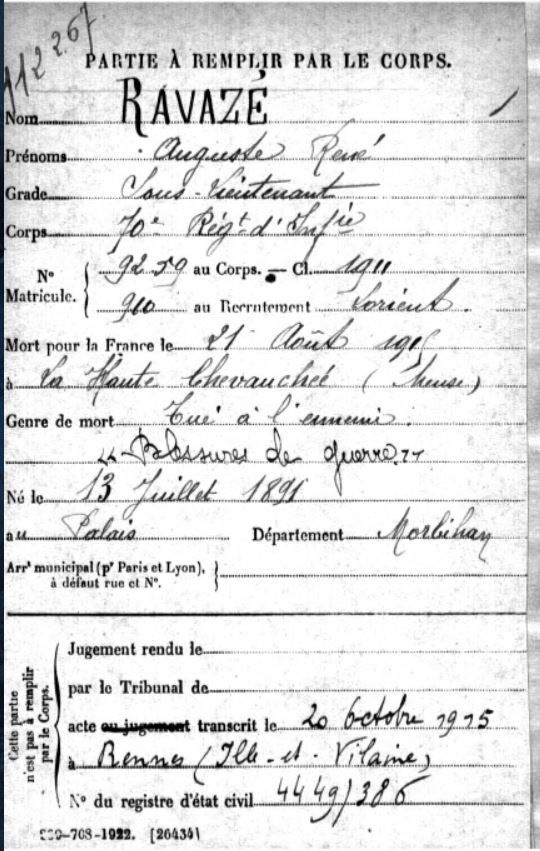 112 267
PARTIE À REMPLIR PAR LE CORPS.
Nom RAVAZÉ
Prénoms Auguste René
Grade Sous-Lieutenant
Corps 70e Régt d'Infie
N° Matricule. { 9259 au Corps. — Cl. 1911
910 au Recrutement Lorient.
Mort pour la France le 21 Août 1915
à La Haute Chevauchée (Meuse)
Genre de mort Tué à l'ennemi.
"Blessures de guerre."
Né le 13 Juillet 1891
au Palais Département Morbihan
Arrt municipal (pr Paris et Lyon), }
à défaut rue et N°.
Cette partie n'est pas à remplir par le Corps.
Jugement rendu le
par le Tribunal de
acte ou jugement transcrit le 20 Octobre 1915
à Rennes (Ille-et-Vilaine)
N° du registre d'état civil 4449/386
-708-1922. [26434]